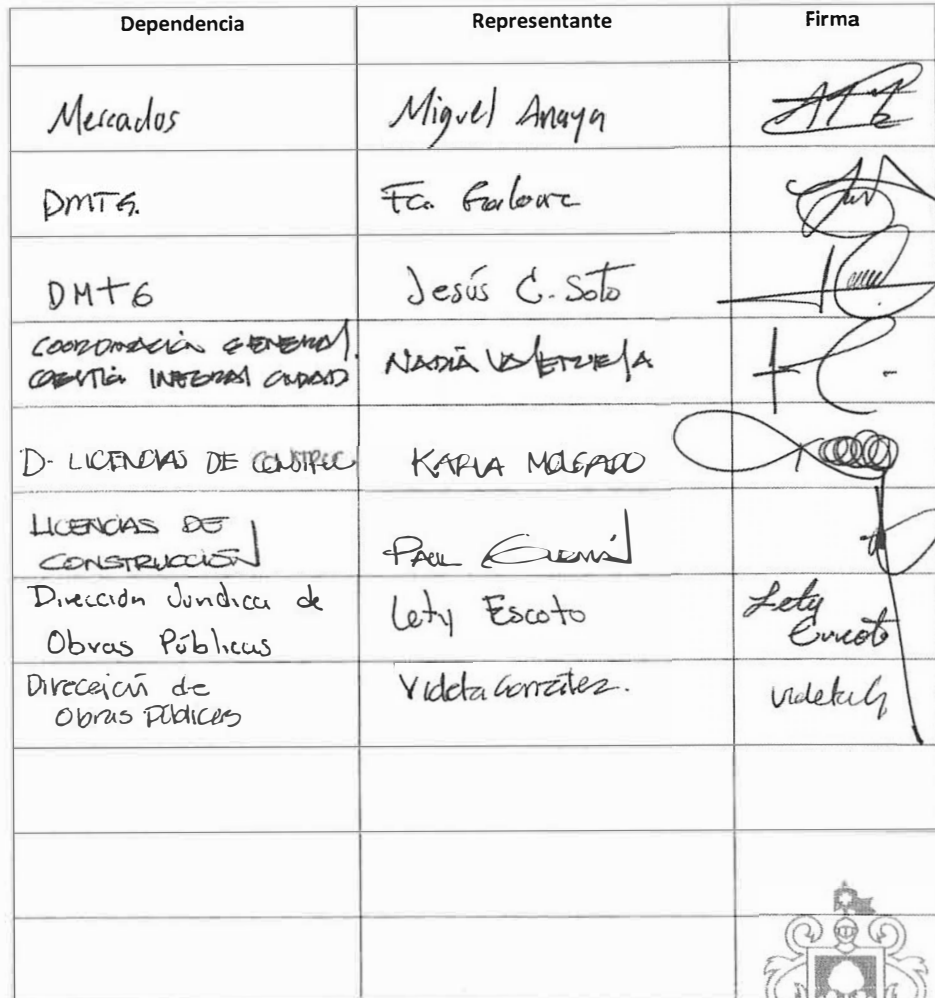 Dependencia Representante Firma
Mercados Miguel Anaya
DMTG. Fco.
DMTG Jesús C. Soto
COORDINACIÓN GENERAL
GESTIÓN INTEGRAL CIUDAD NADIA VALENZUELA
D- LICENCIAS DE CONSTRUC KARLA MOLGADO
LICENCIAS DE
CONSTRUCCIÓN PAUL GUZMÁN
Dirección Jurídica de
Obras Públicas Lety Escoto Lety Escoto
Dirección de
Obras Públicas Violeta González. Violeta G